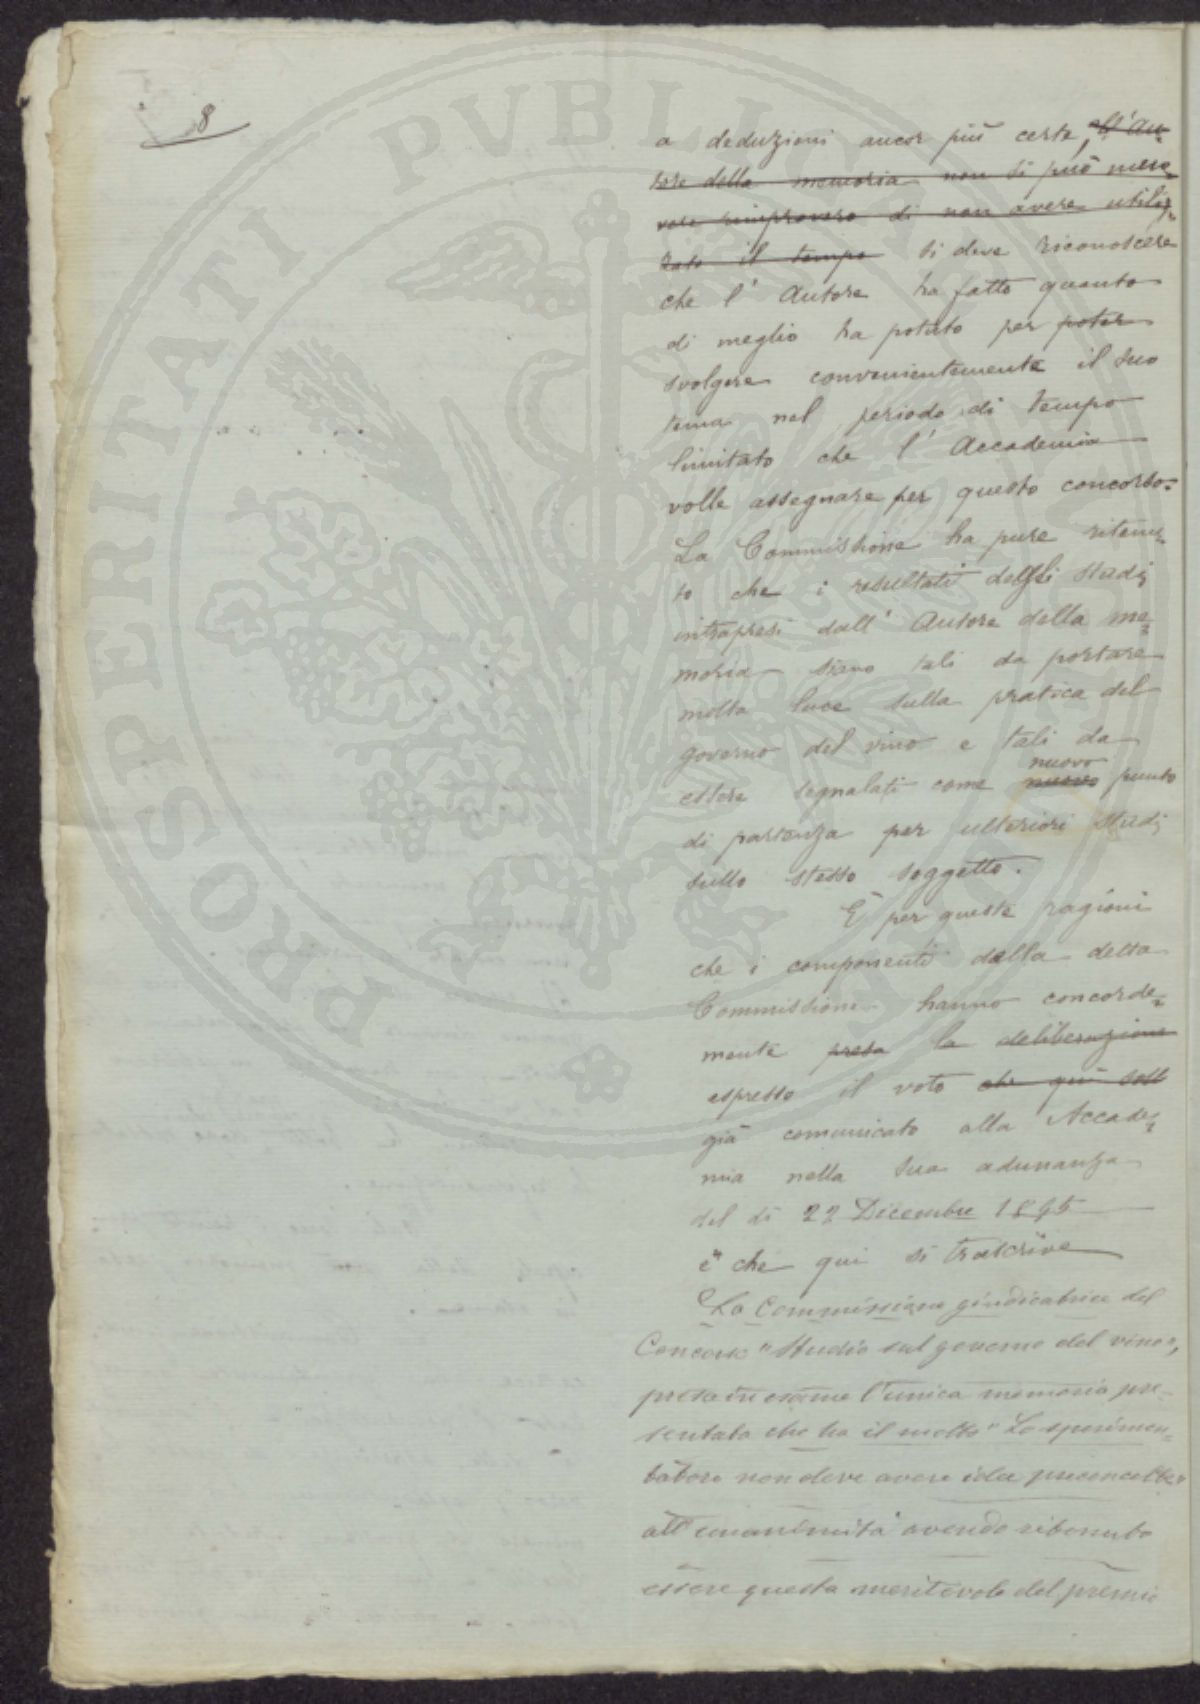 8
a deduzioni ancor più certe, all'Au-
tore della memoria non si può muo-
vere rimprovero di non avere utiliz-
zato il tempo si deve riconoscere
che l'Autore ha fatto quanto
di meglio ha potuto per poter
svolgere convenientemente il suo
tema nel periodo di tempo
limitato che l'Accademia
volle assegnare per questo concorso.
La Commissione ha pure ritenu-
to che i resultati degli studi
intrapresi dall'Autore della me-
moria siano tali da portare
molta luce sulla pratica del
governo del vino e tali da
essere segnalati come nuovo nuovo punto
di partenza per ulteriori studi
sullo stesso soggetto.
È per queste ragioni
che i componenti della detta
Commissione hanno concorde-
mente presa la deliberazione
espresso il voto che qui sott
già comunicato alla Accade-
mia nella sua adunanza
del dì 22 Dicembre 1895
e che qui si trascrive
La Commissione giudicatrice del
Concorso "Studio sul governo del vino",
presa in esame l'unica memoria pre-
sentata che ha il motto "Lo sperimen-
tatore non deve avere idee preconcette"
all'unanimità avendo ritenuto
essere questa meritevole del premio
PROSPERITATI PUBLICAE AUGENDAE